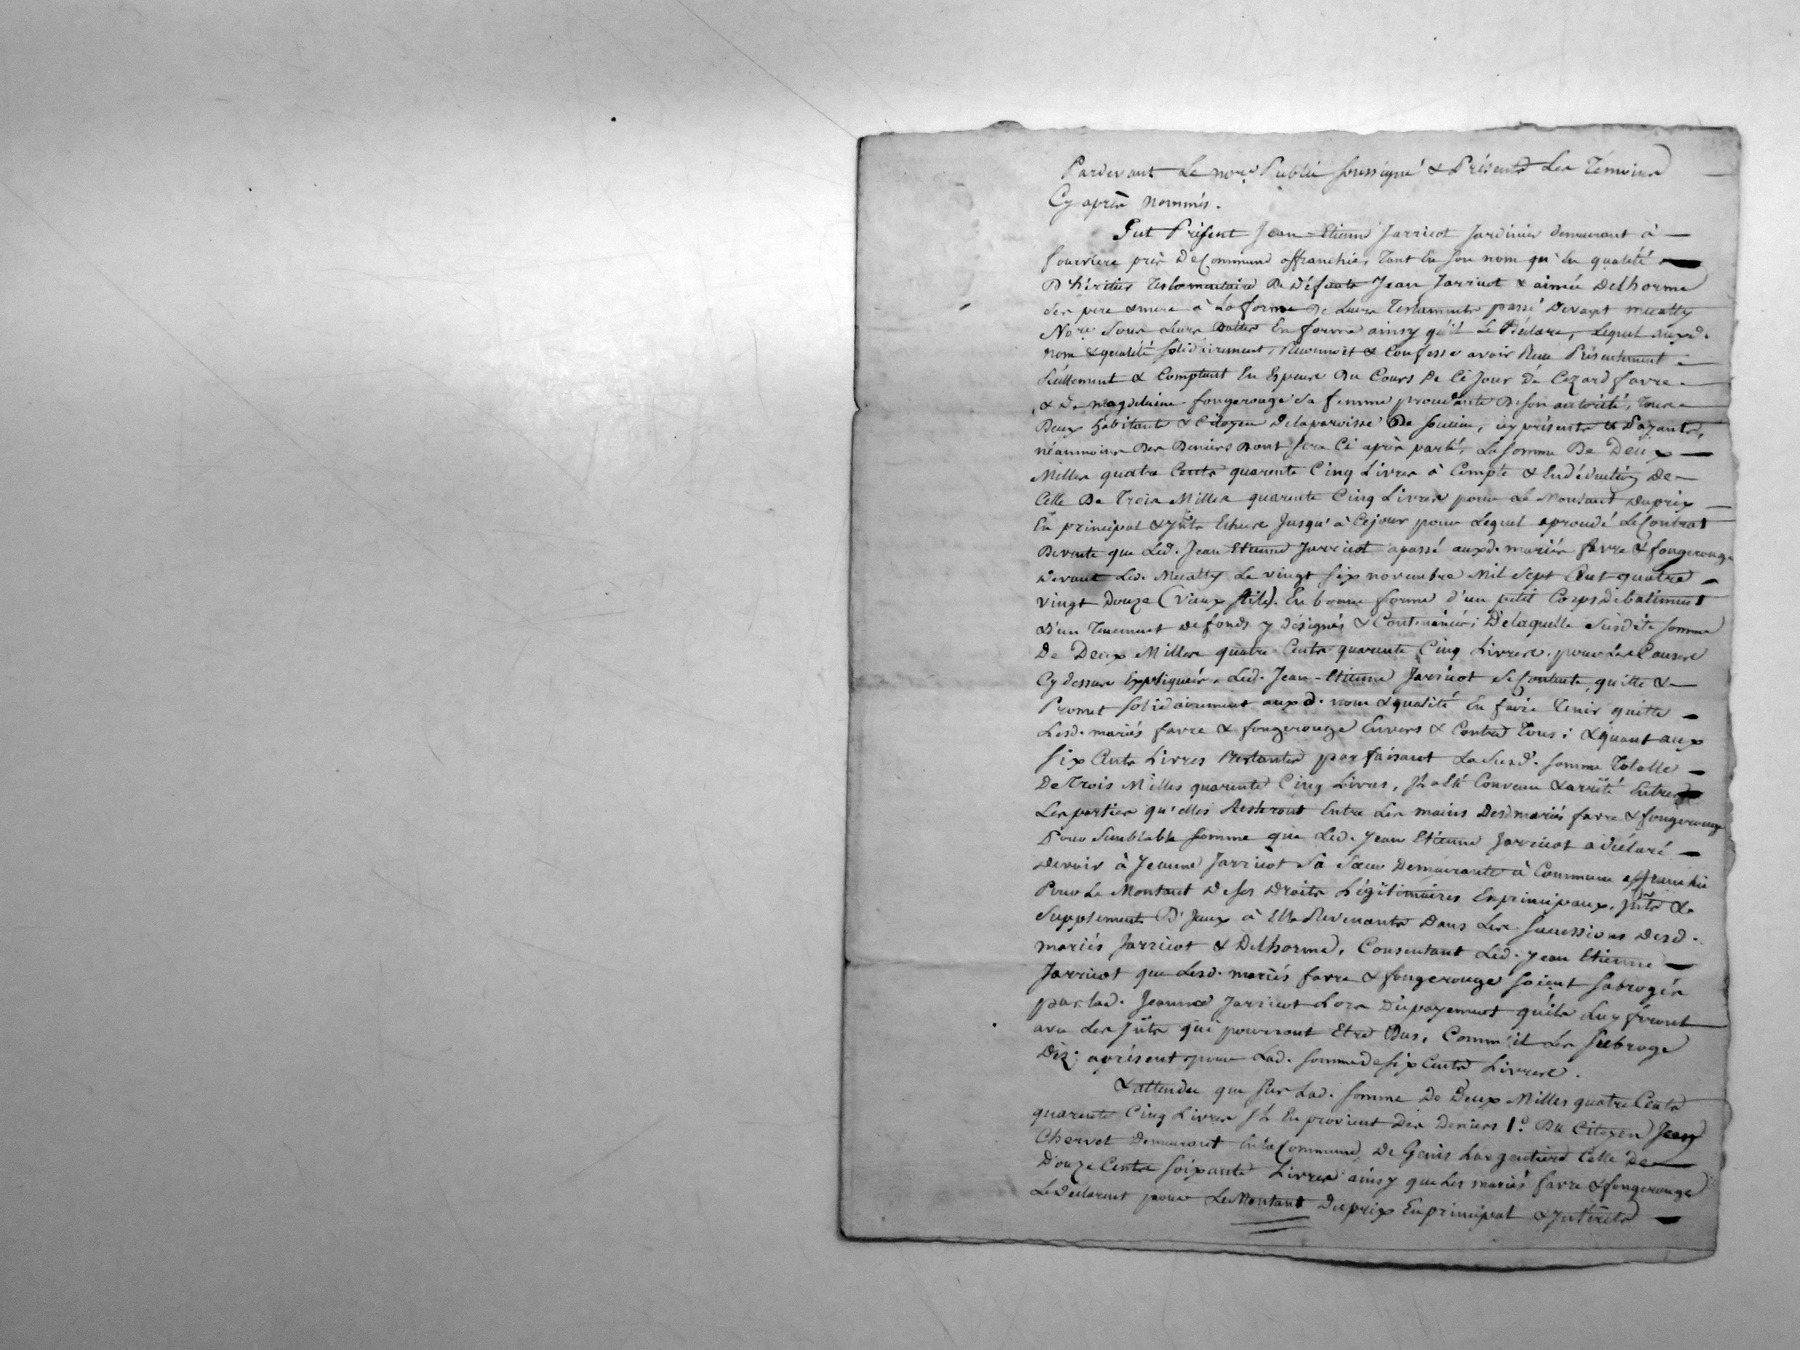 Pardevant Le no.re Public soussigné & Présents Les Témoins
Cy après nommés.
Fut Présent Jean-Etienne Jarricot Jardinier demeurant à
fourviere près De Commune affranchie, Tant En son nom qu'en qualité
D'héritier Testamentaire De Défunts Jean Jarricot & aimée Delhorme
ses pere & mere à La forme De Leurs Testaments passé Devant
No.re Sous Leurs Dattes En forme ainsy qu'il Le Déclare, Lequel auxd.
nom & qualité solidairement, Reconnoit & Confesse avoir Reçu Présentement
Réellement & Comptant En Espèces Du Cours De Ce Jour De Cezard favre
& De magdelaine fougerouge sa femme procédante De son autorité, Tous
Deux habitants & Citoyen De la paroisse De, icy présents & Payants,
néanmoins Des Deniers Dont sera Ci après parlé, La somme De Deux
Milles quatre Cents quarente Cinq Livres à Compte & En déduction De
Celle De Trois Milles quarente Cinq Livres pour Le Montant Du prix
En principal & Jnts Echus Jusqu'à Ce jour pour Lequel a procédé Le Contrat
De vente que Led. Jean Etienne Jarricot a passé auxd. mariés favre & fougerouge
Devant Led. Le vingt six novembre Mil Sept Cent quatre
vingt Douze (vieux stile). En bonne forme d'un petit Corps De batiment
& D'un Tenement De fonds y désignés & Confinés; De laquelle susdite somme
De Deux Milles quatre Cents quarente Cinq Livres pour Les Causes
Cy dessus Expliquées, Led. Jean-Etienne Jarricot se Contente, quitte &
Promet solidairement auxd. nom & qualité En faire Tenir quitte
Lesd. mariés favre & fougerouge Envers & Contre Tous; & quant aux
six Cents Livres Restantes parfaisant La Susd. somme Totalle
De Trois Milles quarente Cinq Livres, Jl a Eté Convenu & arrêté Entre
Les parties qu'elles Resteront Entre Les mains Desd. mariés favre & fougerouge
Pour Semblable somme que Led. Jean Etienne Jarricot a déclaré
devoir à Jeanne Jarricot Sa Sœur Demeurante à Commune affranchie
Pour Le Montant De ses Droits Légitimaires En principaux, Jnts &
Supplements D'Jceux à Elle Revenants Dans Les Successions Desd.
mariés Jarricot & Delhorme, Consentant Led. Jean Etienne
Jarricot que Lesd. mariés favre & fougerouge soient subrogés
par Lad. Jeanne Jarricot Lors Du payement qu'ils Luy feront
avec Les Jnts qui pourront Etre Dus, Comme il Les Subroge
Dès à présent pour Lad. somme De six Cents Livres.
& attendu que sur Lad. somme De Deux Milles quatre Cents
quarente Cinq Livres Jl En provient Des Deniers 1.o Du Citoyen Jean
Chervet Demeurant En la Commune De Genis Largentiere Celle De
Douze Cents soixante Livres ainsy que Les mariés favre & fougerouge
Le Déclarent pour Le Montant Du prix En principal & Jntérêts